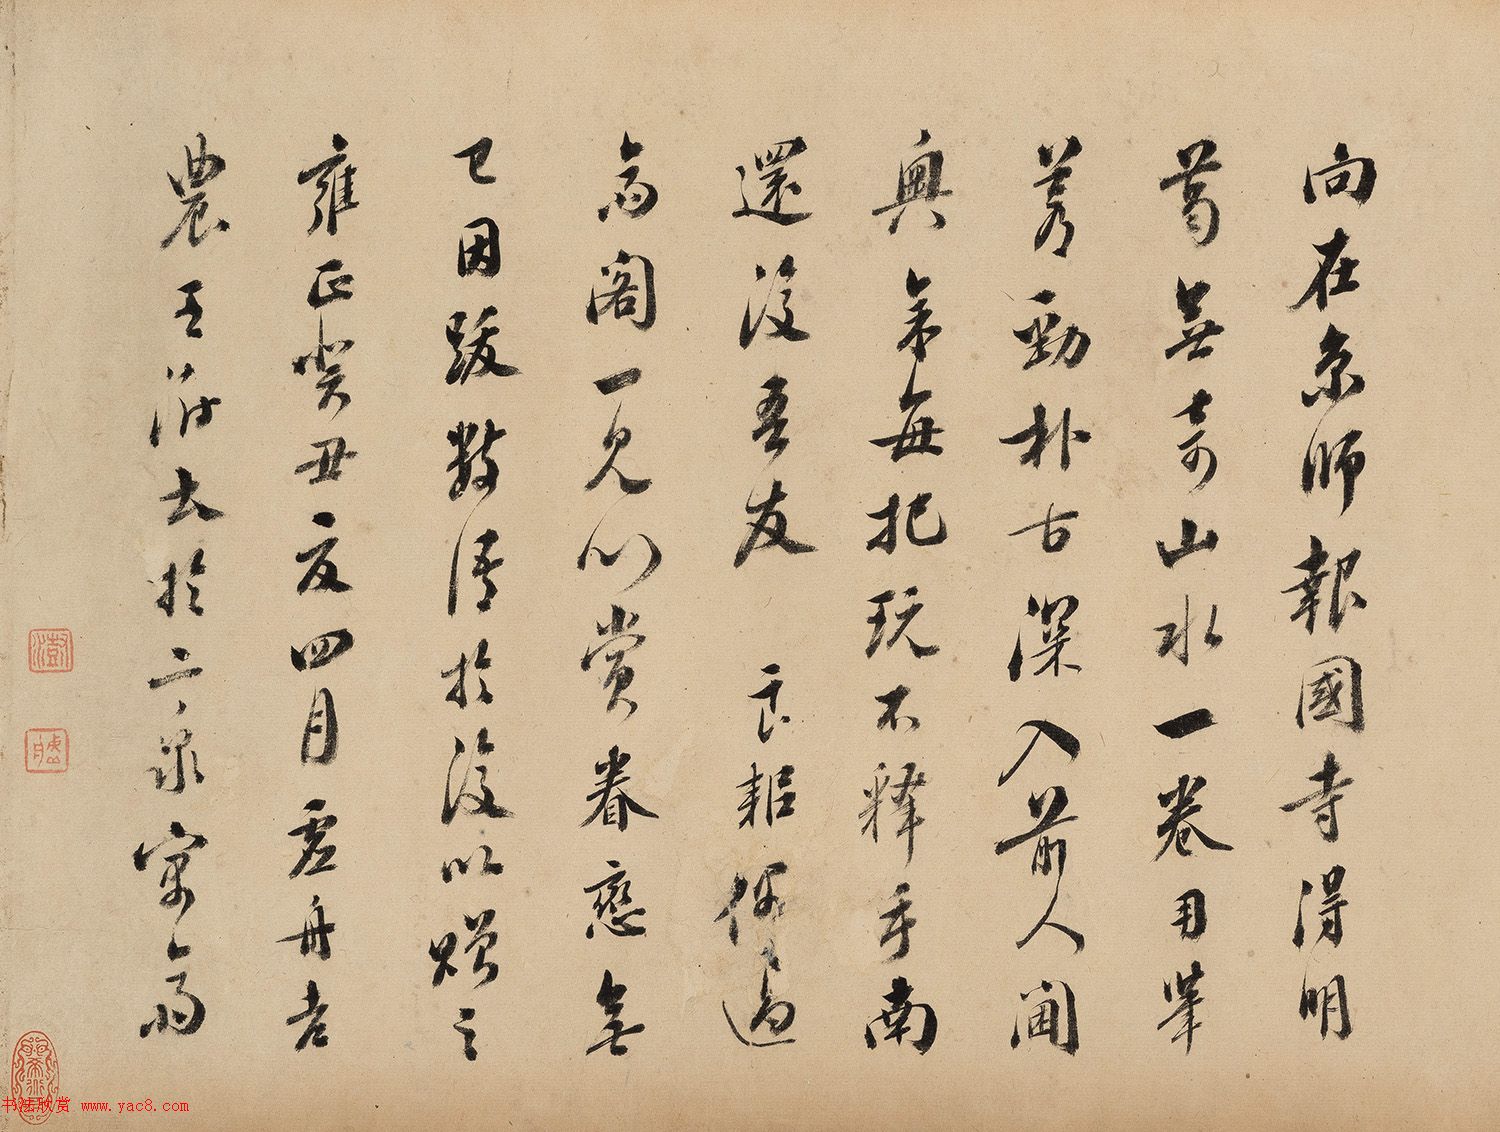 向在京師報國寺得明
葛無奇山水一卷用筆
蒼勁朴古深入前人閫
奧余每把玩不釋手南
還後吾友 良耜偶過
齋閣一見心賞眷戀無
已因跋數語於後以贈之
雍正癸丑夏四月虛舟老
農王澍書於二泉寓齋
澍
书法欣赏 www.yac8.com